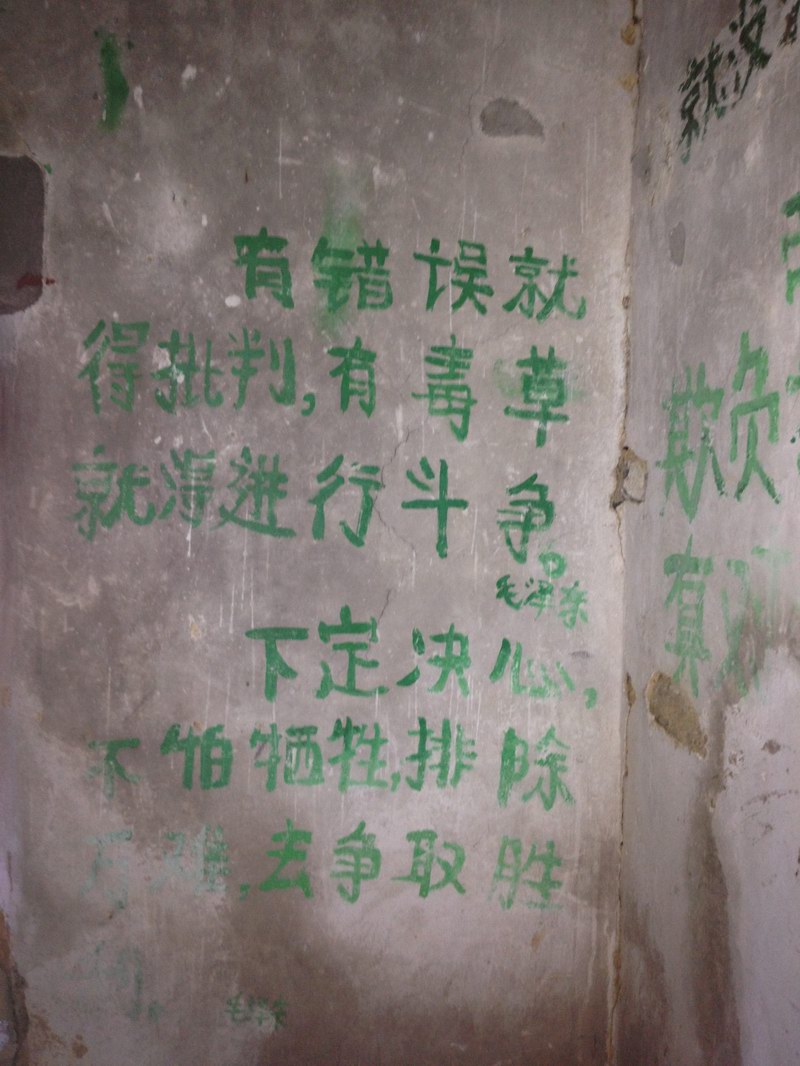 有错误就
得批判,有毒草
就得进行斗争。
毛泽东
下定决心,
不怕牺牲,排除
万难,去争取胜
利。
毛泽东
就没
欺负
有